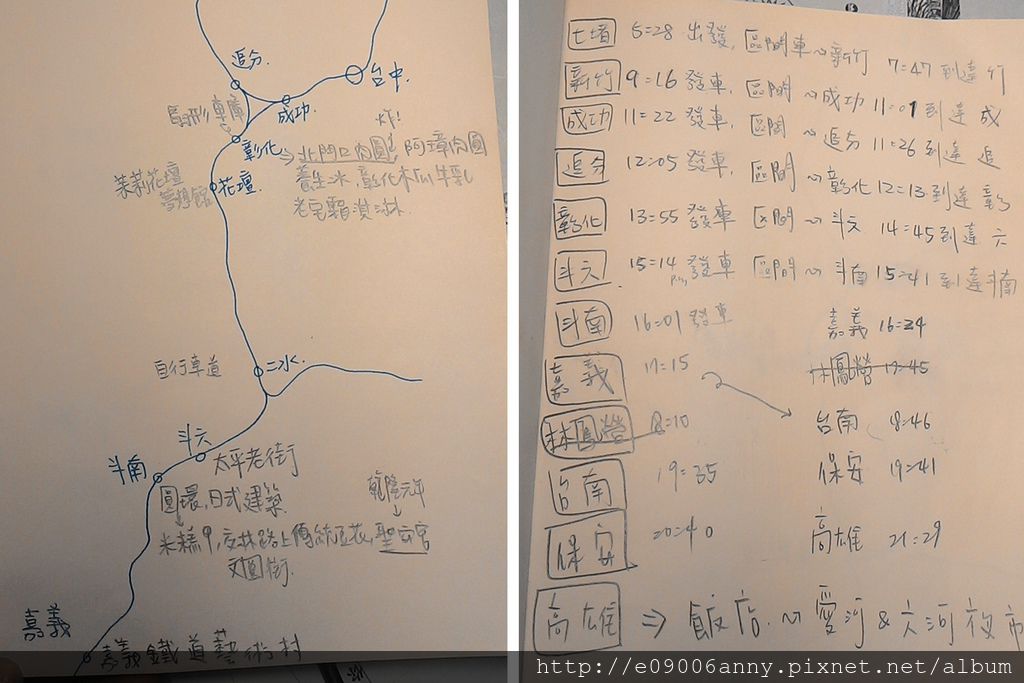 追分.
台中
成功.
扇形車庫
炸!
彰化 => 北門口肉圓, 阿璋肉圓
養生冰, 彰化木瓜牛乳
老宅霜淇淋.
花壇.
茉莉花壇
夢想館
自行車道
二水.
斗六
太平老街
斗南
圓環, 日式建築.
乾隆元年
米糕, 傳統豆花, 聖安宮
文圓街.
嘉義
嘉義鐵道藝術村
七堵 5=28 出發, 區間車~新竹 7=47 到達 竹
新竹 9=16 發車, 區間 ~成功 11=01 到達 成
成功 11=22 發車, 區間 ~ 追分 11=26 到達 追
追分 12=05 發車, 區間 ~ 彰化 12=13 到達 彰
彰化 13=55 發車 區間 ~ 斗六 14=45 到達 六
斗六 15=14 發車 區間 ~ 斗南 15=41 到達斗南
斗南 16=01 發車 嘉義 16=24
嘉義 17=15 林鳳營 17=45
林鳳營 8=10 台南 8=46
台南 19=35 保安 19=41
保安 20=40 高雄 21=29
高雄 => 飯店 ~ 愛河 & 六河夜市
http://e09006anny.pixnet.net/album